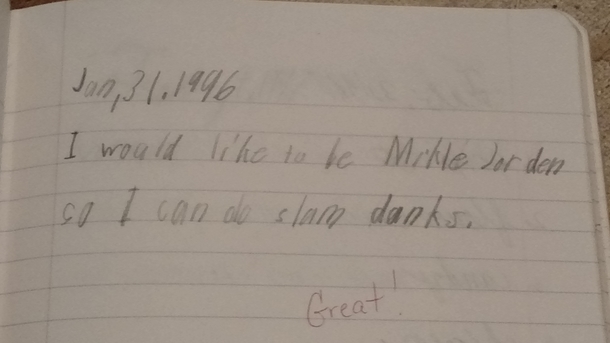 Jan,31.1996
I woald like to be Mikle Jorden
so I can do slam danks.
Great!